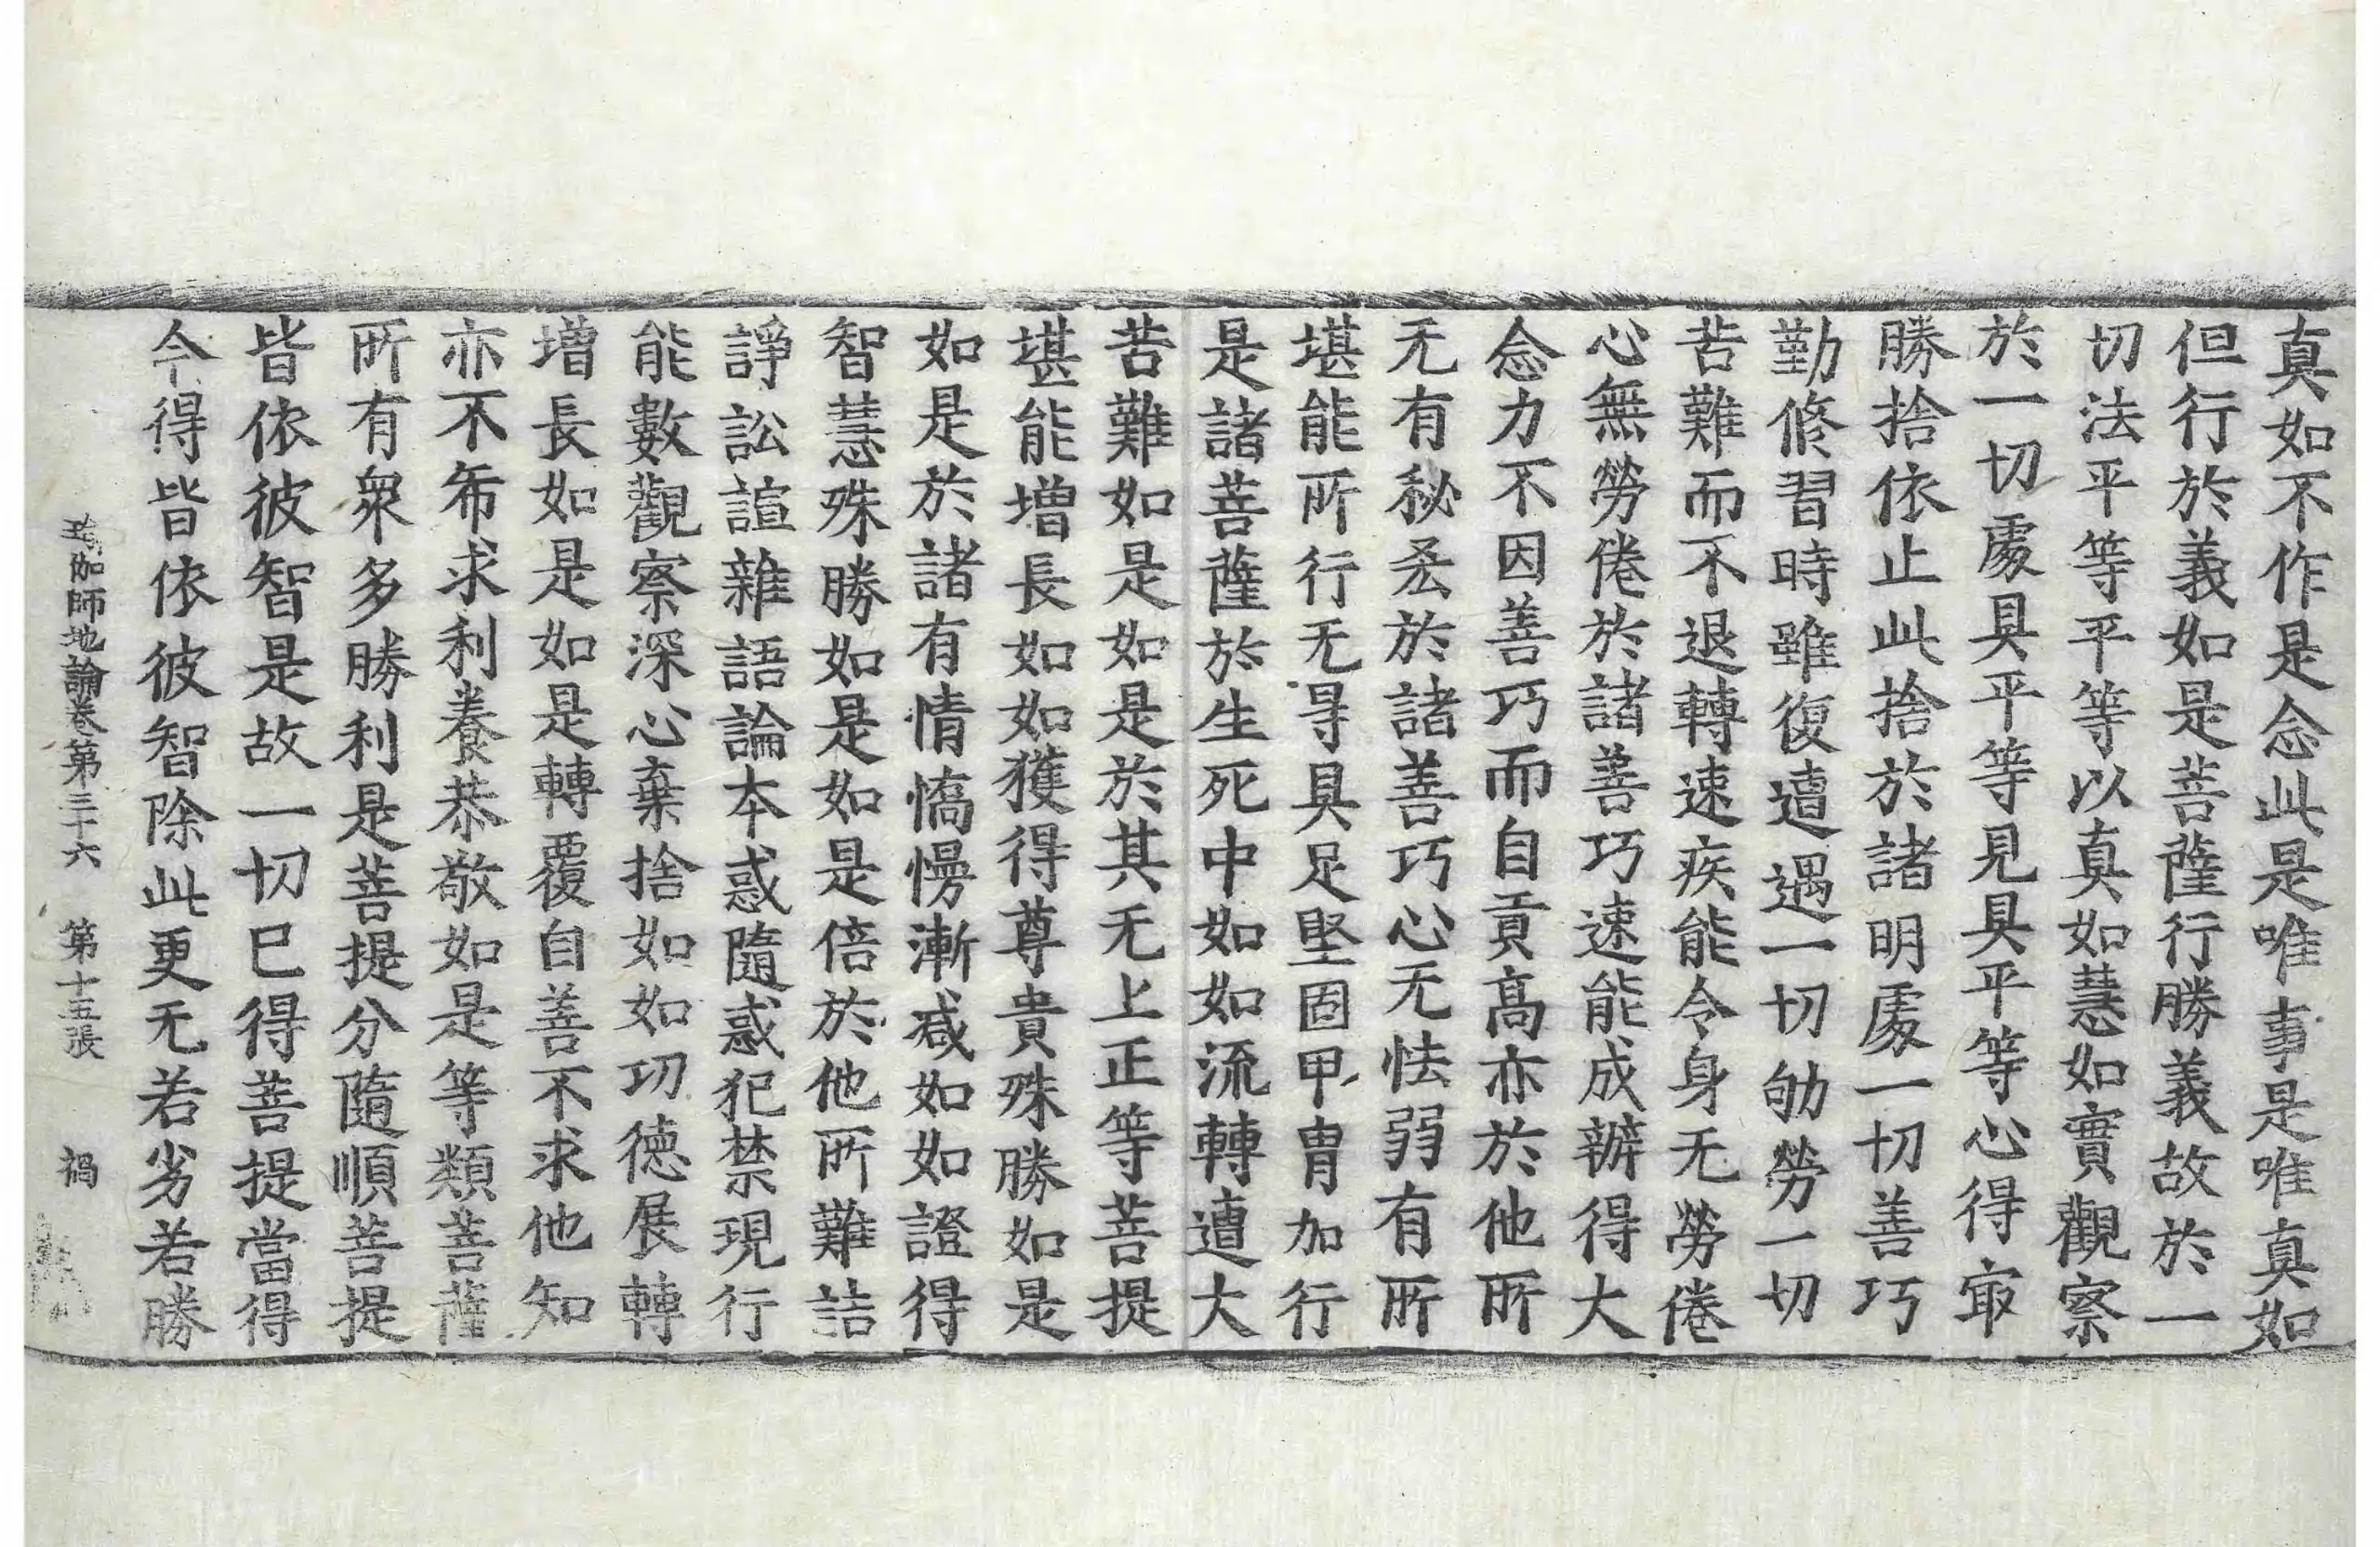 真如不作是念此是唯事是唯真如
但行於義如是菩薩行勝義故於一
切法平等平等以真如慧如實觀察
於一切處具平等見具平等心得㝡
勝捨依止此捨於諸明處一切善巧
勤修習時雖復遭遇一切劬勞一切
苦難而不退轉速疾能令身无勞倦
心無勞倦於諸善巧速能成辦得大
念力不因善巧而自貢高亦於他所
无有秘悋於諸善巧心无怯弱有所
堪能所行无㝵具足堅固甲胄加行
是諸菩薩於生死中如如流轉遭大
苦難如是如是於其无上正等菩提
堪能增長如如獲得尊貴殊勝如是
如是於諸有情憍慢漸減如如證得
智慧殊勝如是如是倍於他所難詰
諍訟諠雜語論本惑隨惑犯禁現行
能數觀察深心棄捨如如功德展轉
增長如是如是轉覆自善不求他知
亦不希求利養恭敬如是等類菩薩
所有衆多勝利是菩提分隨順菩提
皆依彼智是故一切已得菩提當得
今得皆依彼智除此更无若劣若勝
瑜伽師地論卷第三十六 第十五張 禍